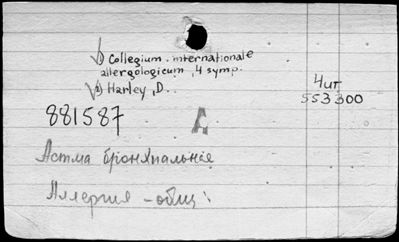 1) Collegium internationale
allergologicum, 4 symp.
2) Harley, D.
4 шт
553300
881587 А
Астма бронхиальные
Аллергия - общ: